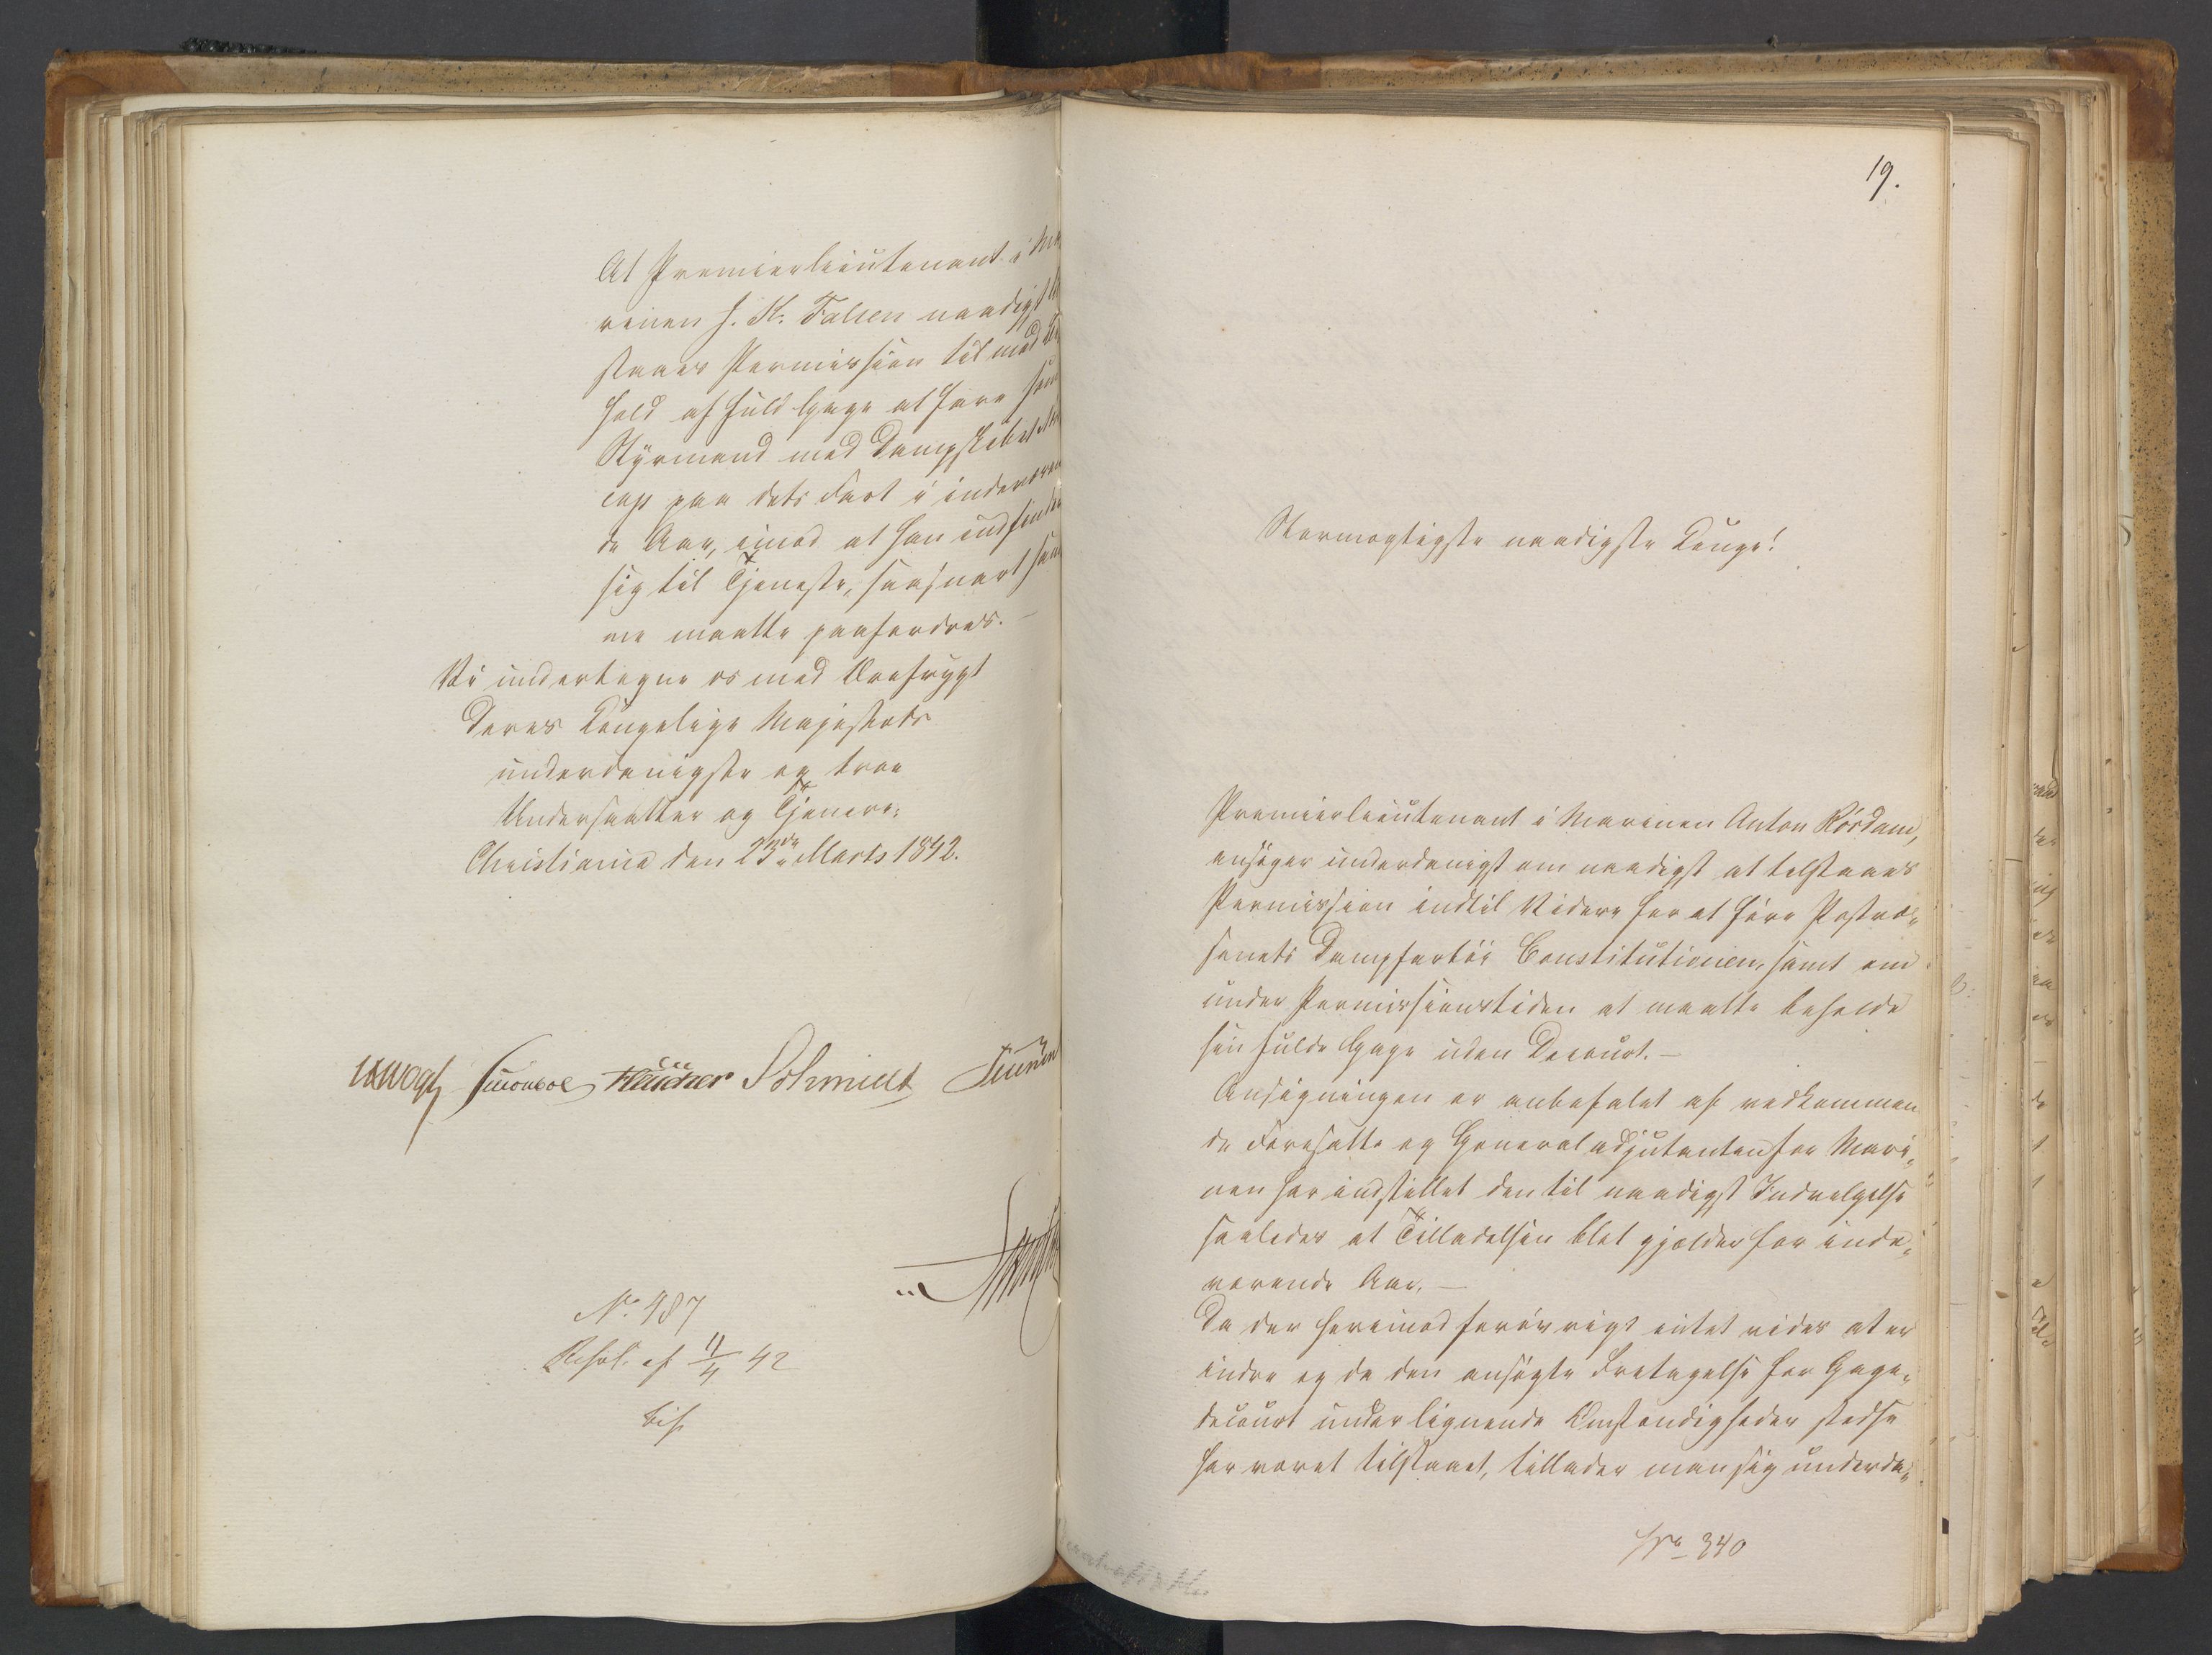 At Premierlieutenant i Ma
rinen J. K. Falsen naadigst
staaes Permission til med
hold af fuld Gage at fare som
Styrmand med Dampskibet
cap paa dets Fart i indeværen
de Aar, imod at han indfinder
sig til Tjeneste, saasnart sam
me maatte paafordres. —
Vi undertegne os med Ærefrygt
Deres Kongelige Majestæts
underdanigste og troe
Undersaatter og Tjenere.
Christiania den 23de Marts 1842.
Vogt Sibbern Fleischer Schmidt
No. 487
Resol. af 11/4 42
19.
Stormægtigste naadigste Konge!
Premierlieutenant i Marinen Anton Rördam,
ansøger underdanigst om naadigst at tilstaaes
Permission indtil Videre for at føre Postvæ-
senets Dampfartöi Constitutionen, samt om
under Permissionstiden at maatte beholde
sin fulde Gage uden Decourt. —
Ansøgningen er anbefalet af vedkommen
de Foresatte og Generaladjutanten for Mari-
nen har indstillet den til naadigst Indvilgelse
saaledes at Tilladelsen blot gjælder for inde-
værende Aar. —
Da der herimod forövrigt intet vides at er
indre og da den ansøgte Fritagelse for Gage-
decourt under lignende Omstændigheder stedse
har været tilstaaet, tillader man sig underda-
No 340